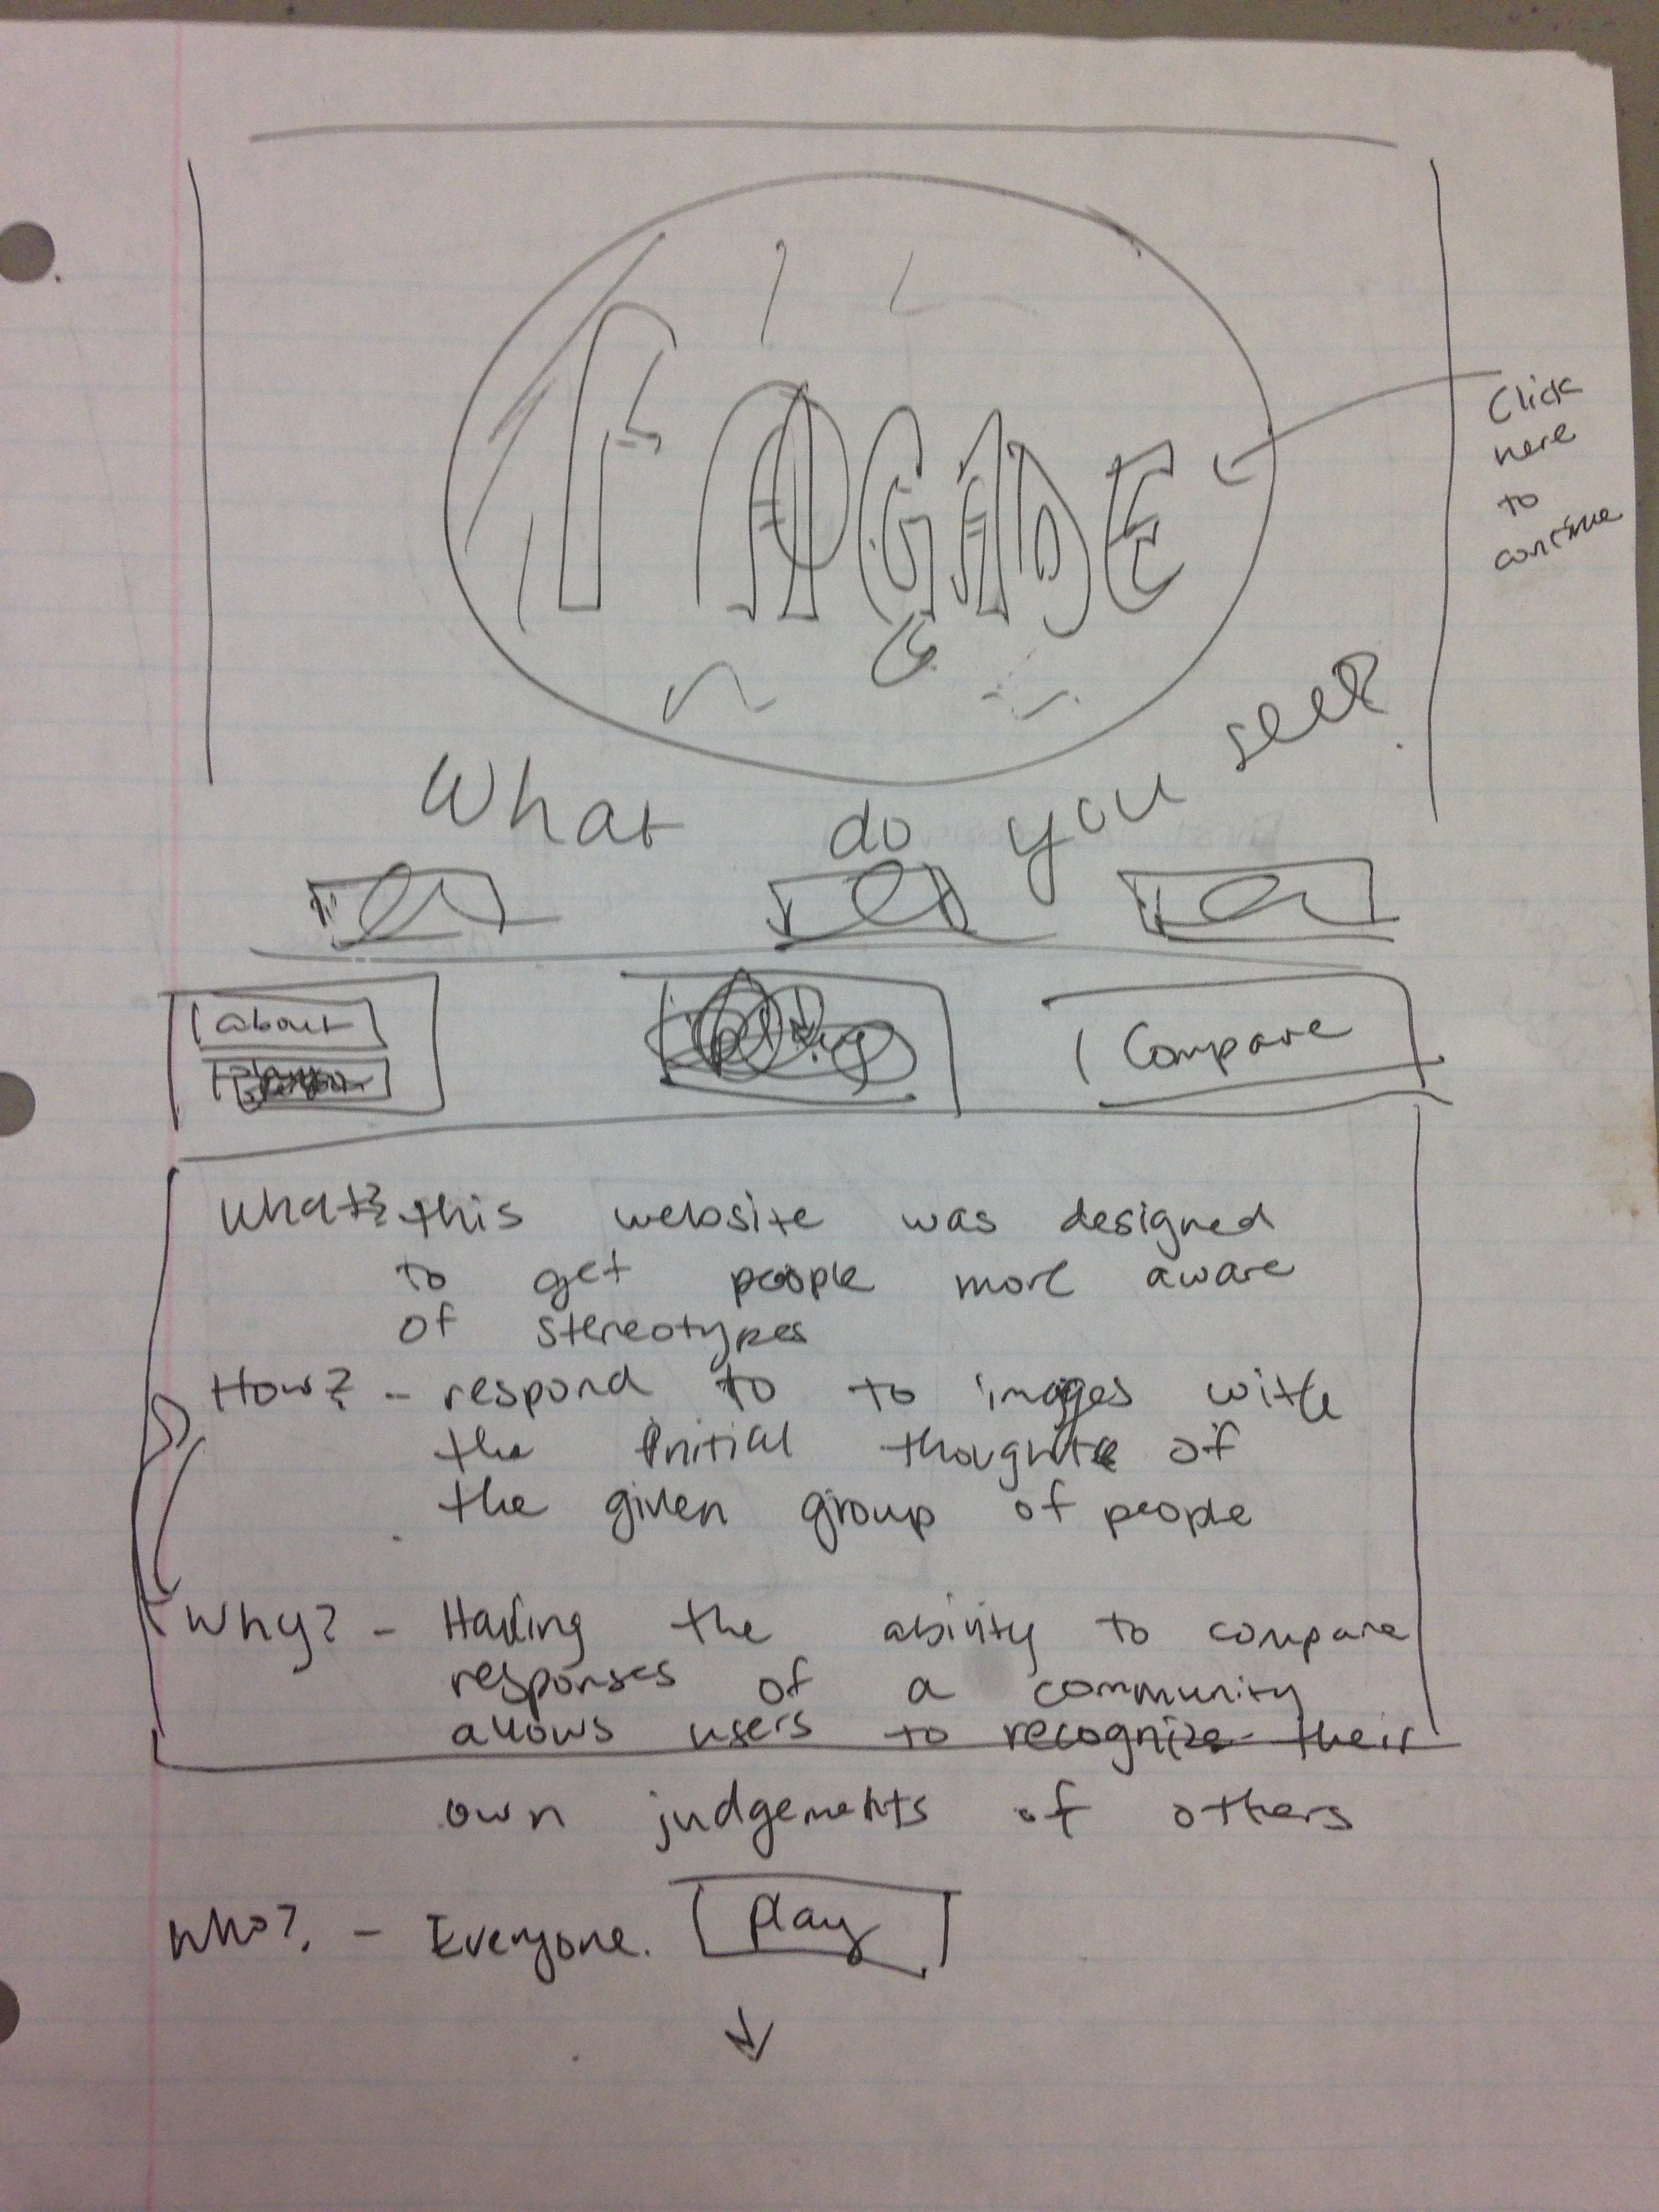 FAÇADE
Click
here
to
continue
What do you see?
about
Compare
What? this website was designed
to get people more aware
of stereotypes
How? - respond to to images with
the initial thoughts of
the given group of people
Why? - Having the ability to compare
responses of a community
allows users to recognize their
own judgements of others
Who? - Everyone. play